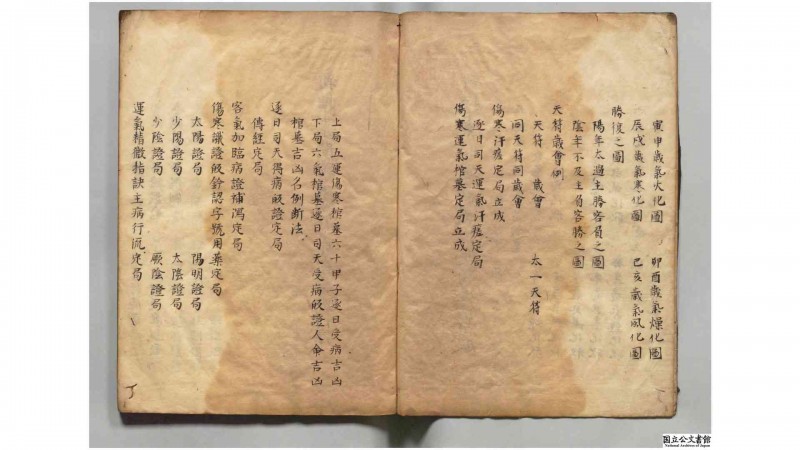 寅申歲氣火化圖　卯酉歲氣燥化圖
辰戌歲氣寒化圖　己亥歲氣風化圖
勝復之圖
陽年太過主勝客負之圖
陰年不及主負客勝之圖
天符歲會例
天符　歲會　太一天符
同天符同歲會
傷寒汗瘥定局立成
逐日司天運氣汗瘥定局
傷寒運氣棺墓定局立成
上局五運傷寒棺墓六十甲子逐日受病吉凶
下局六氣棺墓逐日司天受病𠊓證人命吉凶
棺墓吉凶名例斷法
逐日司天得病證定局
傳經定局
客氣加臨病證補瀉定局
傷寒識證鈐認字號用藥定局
太陽證局　陽明證局
少陽證局　太陰證局
少陰證局　厥陰證局
運氣精微指訣主病行流定局
国立公文書館
National Archives of Japan